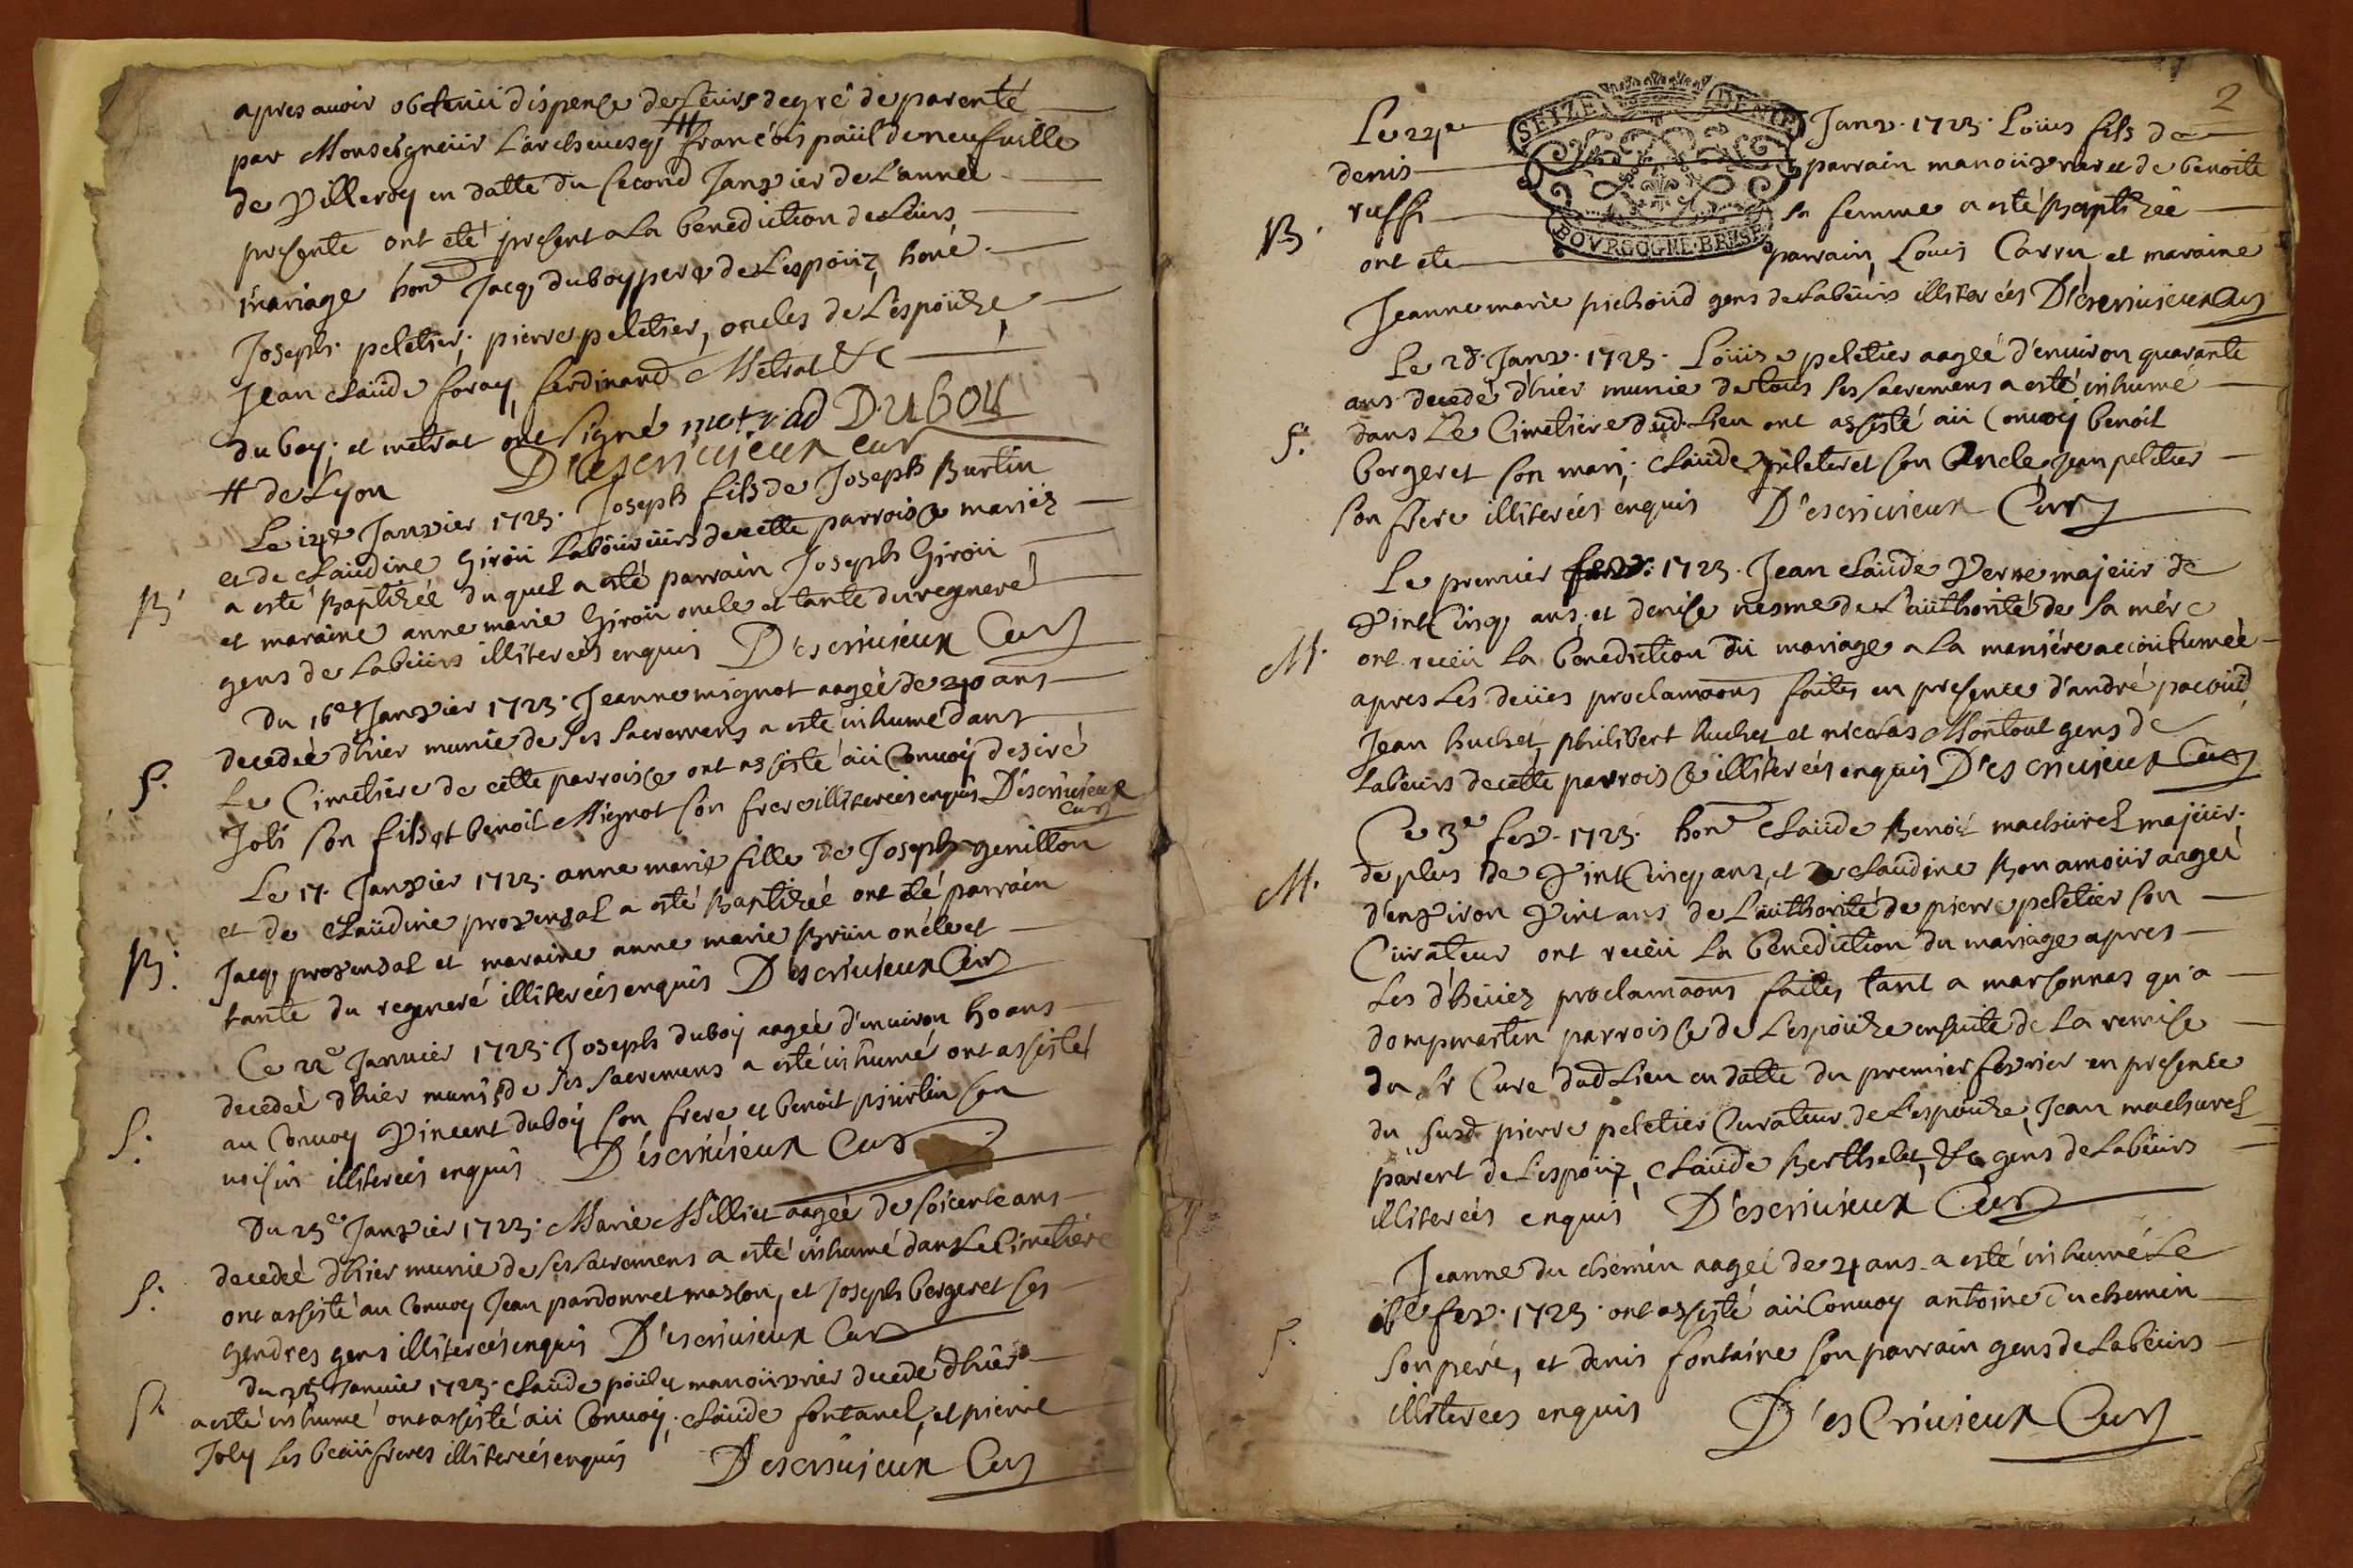 apres avoir obtenu dispense de Leurs degré de parenté
par Monseigneur L'archevesq # françois paul de neufuille
de Villeroy en datte du second Janvier de L'année
presente ont été present a La benediction de Leurs
mariage hon. Jacq. duboy pere de Lespoux, honé
Joseph peletier, pierre peletier, oncles de L'espouze,
Jean Claude foray, ferdinand Metrat &c
duboy; et metrat ont signé metrad Duboy
D'escriuieux cur
# de Lyon
Le 14e Janvier 1723. Joseph fils de Joseph Burtin
et de Claudine Girou Laboureurs de cette parroisse mariéz
B. a esté Baptizéé du quel a esté parrain Joseph Girou
et maraine anne marie Girou oncle et tante du regneré
gens de Labeurs illiterées enquis D'escriuieux Curé
Du 16e Janvier 1723. Jeanne mignot aagéé de 40 ans
S. decedéé d'hier munie de ses sacremens a esté inhumé dans
Le Cimetiere de cette parroisse ont assisté au Convoy desiré
Joli son fils et benoit Mignot son frere illiterées enquis D'escriuieux
Curé
Le 17. Janvier 1723. anne marie fille de Joseph genillon
et de Claudine provensal a esté Baptizéé ont été parrain
B. Jacq. provensal et maraine anne marie Brun oncle et
tante du regeneré illiterées enquis D'escriuieux Curé
Ce 22e Janvier 1723. Joseph duboy aagéé d'environ 40 ans
decedéé d'hier munis de ses sacremens a esté inhumé ont assisté
S. au Convoy Vincent duboy son frere et benoit piurtin son
voisin illiterées enquis D'escriuieux Curé
Du 23e. Janvier 1723. Marie Milliet aagéé de soixente ans
S. decedéé d'hier munie de ses sacremens a esté inhumé dans Le Cimetière
ont assisté au Convoy Jean pardonnet masson, et Joseph bergeret ses
gendres gens illiterées enquis D'escriuieux Curé
du Janvier 1723. Claude poulet manouvrier decedé d'hier
S. a esté inhumé ont assisté au Convoy, Claude fontanel, et pierre
Joly ses beaufreres illiterées enquis D'escriuieux Curé
2
SEIZE DENIE
BOVRGOGNE·BRESSE
Le Janv. 1723. Louis fils de
denis parrain manouvrier et de benoite
B. ruffi sa femme a esté Baptizéé
ont ete parrain, Louis Carru, et maraine
Jeanne marie pichoud gens de Labeurs illiterées D'escriuieux Curé
Le 28. Janv. 1723. Louise peletier aagéé d'environ quarante
ans decedé d'hier munie de tous ses sacremens a esté inhumé
S. dans Le Cimetiere dud. Lieu ont assisté au Convoy benoit
bergeret son mari; Claude peletier et son Oncle, Jean peletier
son frere illiterées enquis D'escriuieux Curé
Le premier fevr. 1723. Jean Claude Verne majeur de
Vint Cinq ans, et denise nesme de L'authorité de sa mére
M. ont receu la benediction du mariage a La maniére accoutumée
apres Les deües proclamaõns faites en presence d'andré pacoud,
Jean huchet, philibert huchet et nicolas Montout gens de
Labeurs de cette parroisse illiterées enquis D'escriuieux Curé
Ce 3e fev. 1723. hon. Claude Benoit machurel majeur
M. de plus de Vint Cinq ans, et de Claudine Bonamour aagéé
d'environ Vint ans de L'authorité de pierre peletier son
Curateur ont receu La benediction du mariage apres
Les d'heües proclamaõns faites tant a marsonnas qu'a
dompmartin parroisse de Lespouze ensuite de La remise
du sr Curé dud Lieu en datte du premier fevrier en presence
du susd pierre peletier Curateur de L'espouze, Jean machurel
parent de Lespoux, Claude Berthelet, &c gens de Labeurs
illiterées enquis D'escriuieux Curé
Jeanne du chemin aagéé de 24 ans a esté inhumé Le
fev. 1723. ont assisté au Convoy antoine du chemin
S. son pere, et denis fontaine son parrain gens de Labeurs
illiterées enquis D'escriuieux Curé